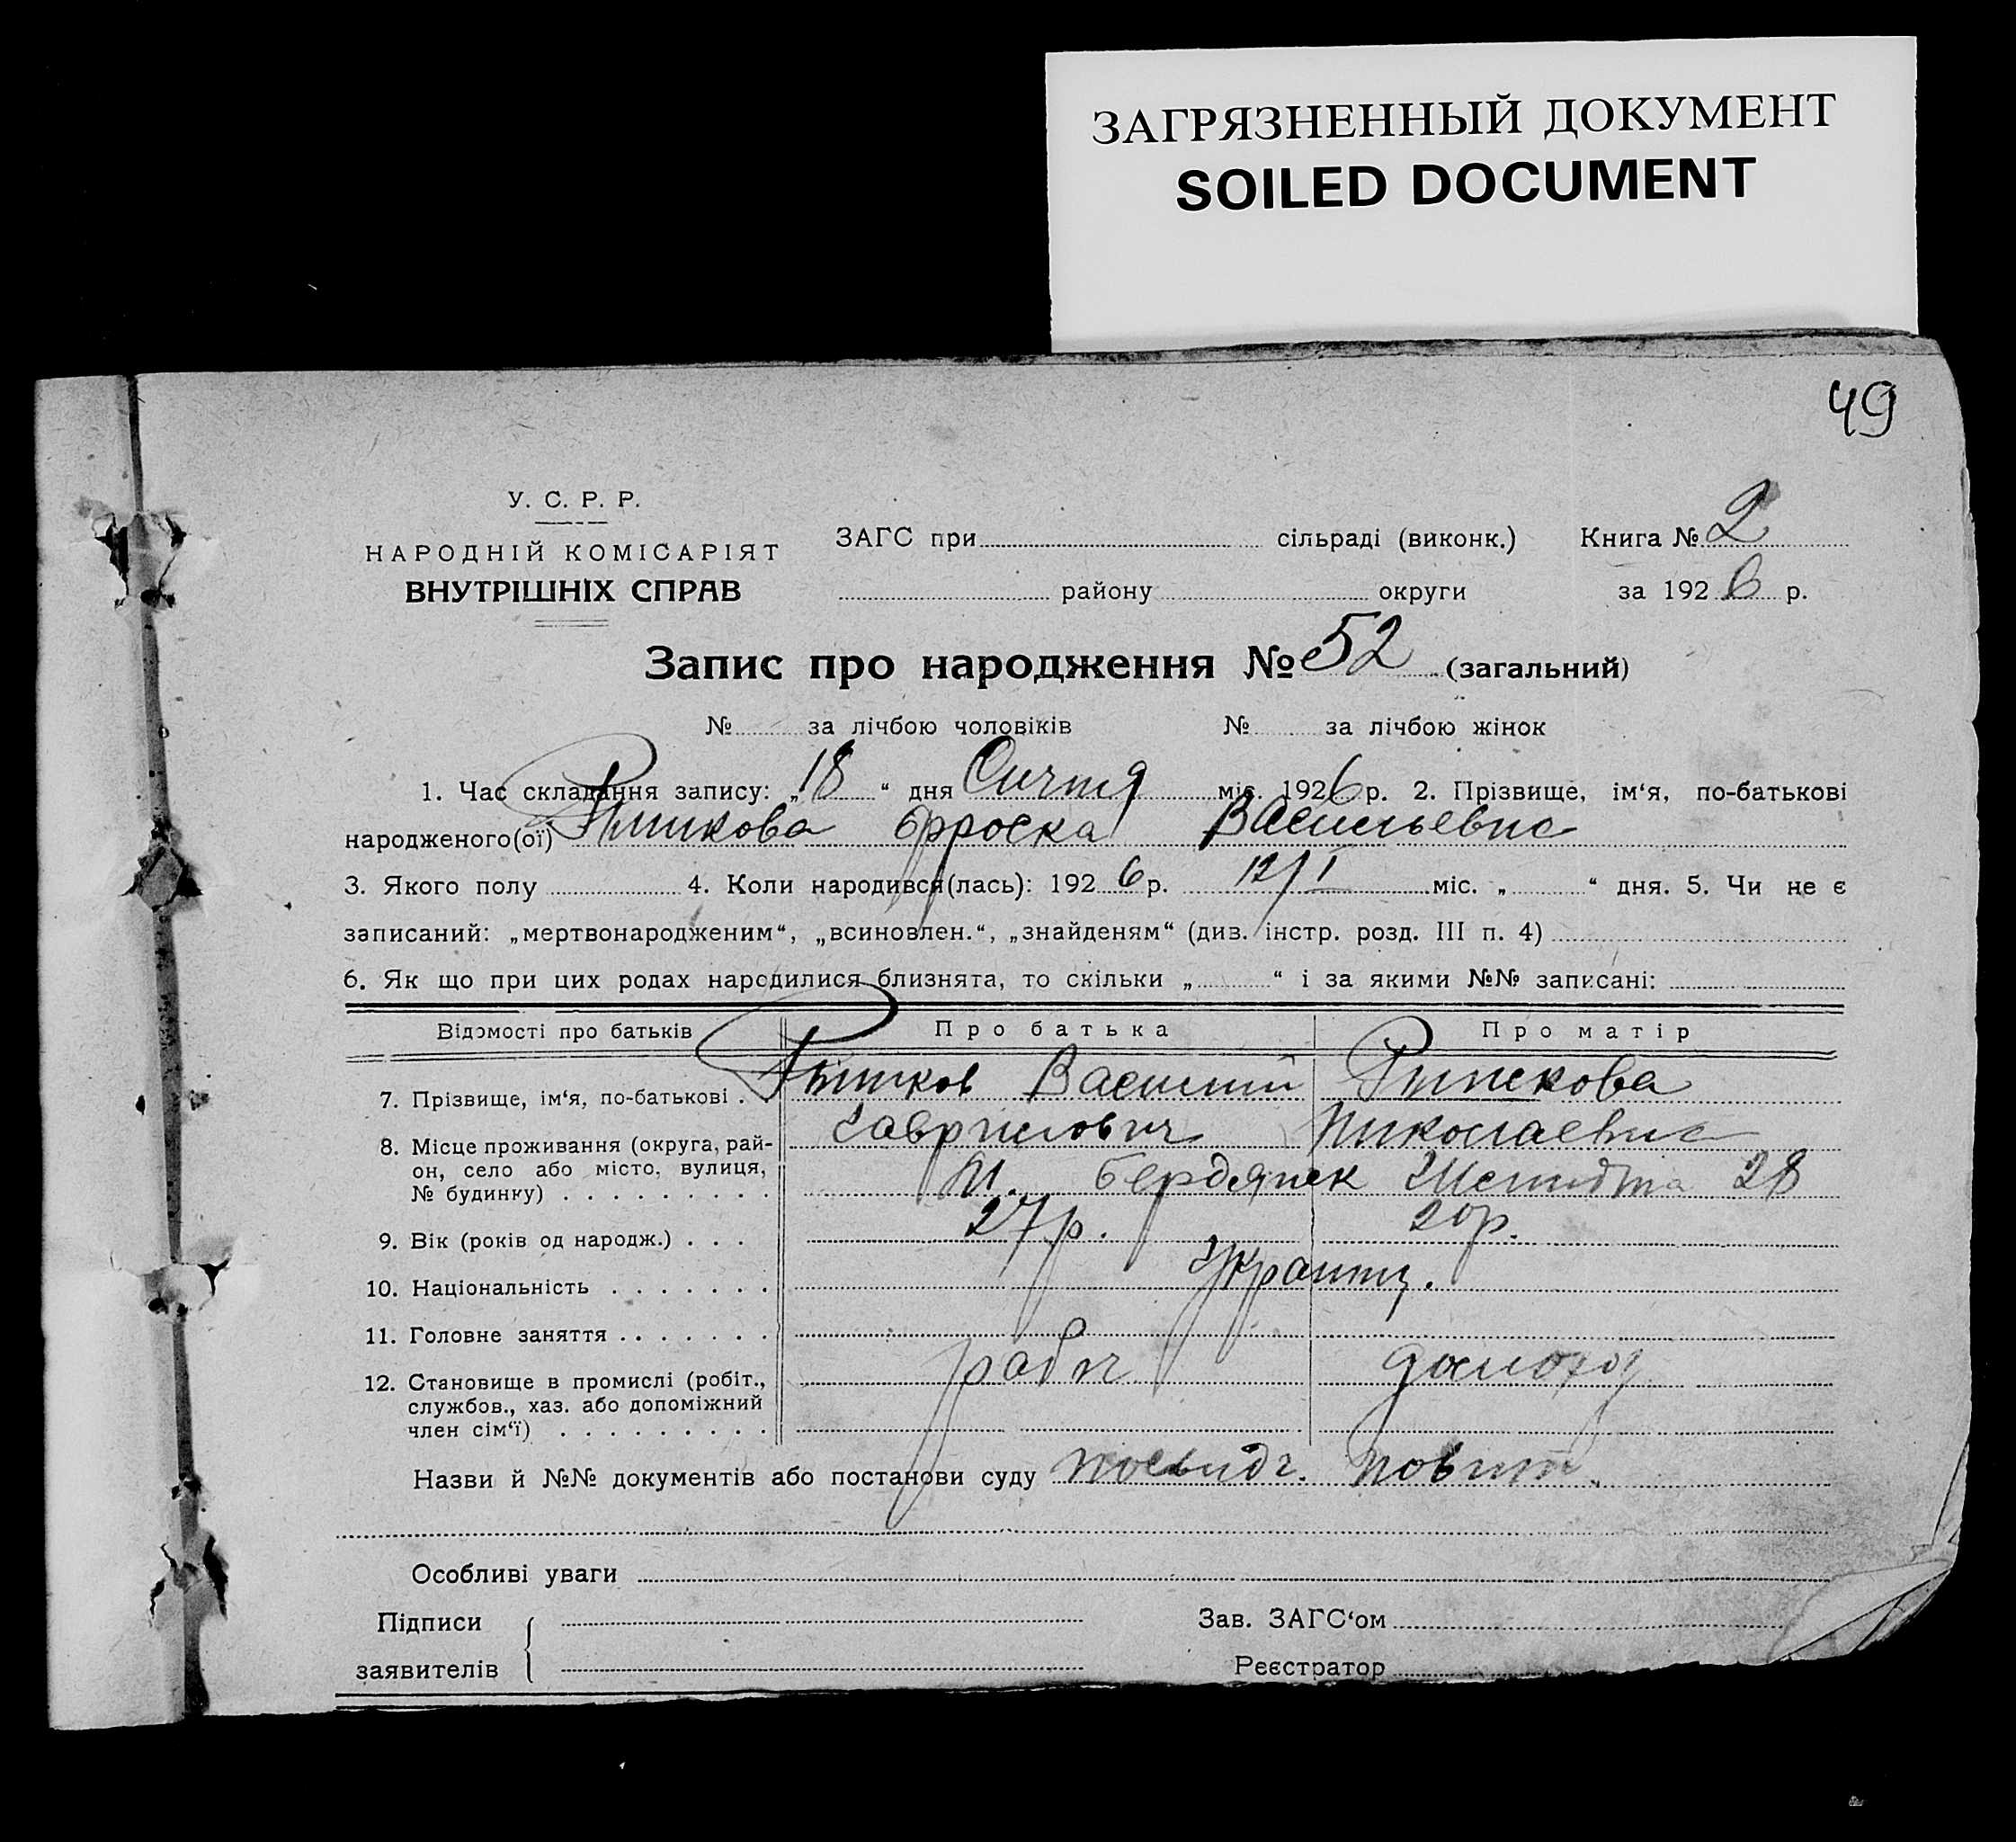 ЗАГРЯЗНЕННЫЙ ДОКУМЕНТ
SOILED DOCUMENT
49
У. С. Р. Р.
НАРОДНІЙ КОМІСАРІЯТ
ВНУТРІШНІХ СПРАВ
ЗАГС при сільраді (виконк.) Книга № 2
району округи за 1926 р.
Запис про народження № 52 (загальний)
№ за лічбою чоловіків № за лічбою жінок
1. Час складання запису: „18“ дня Січня міс. 1926 р. 2. Прізвище, ім‘я, по-батькові
народженого(ої) Васильевна
3. Якого полу 4. Коли народився(лась): 1926 р. 12/I міс. „ “ дня. 5. Чи не є
записаний: „мертвонародженим“, „всиновлен.“, „знайденям“ (див. інстр. розд. III п. 4)
6. Як що при цих родах народилися близнята, то скільки „ “ і за якими №№ записані:
Відомості про батьків Про батька Про матір
7. Прізвище, ім‘я, по-батькові . . Василий
Гаврилович Николаевна
8. Місце проживання (округа, рай-
он, село або місто, вулиця,
№ будинку) . . . . . . . . . М. Бердянск Шмидта 28
9. Вік (років од народж.) . . . 27 р. 20 р.
10. Національність . . . . . . . Украинц.
11. Головне заняття . . . . . . .
12. Становище в промислі (робіт.,
службов., хаз. або допоміжний
член сім‘ї) . . . . . . . . . рабоч домохоз
Назви й №№ документів або постанови суду посвидч. повит.
Особливі уваги
Підписи
заявителів
Зав. ЗАГС‘ом
Реєстратор